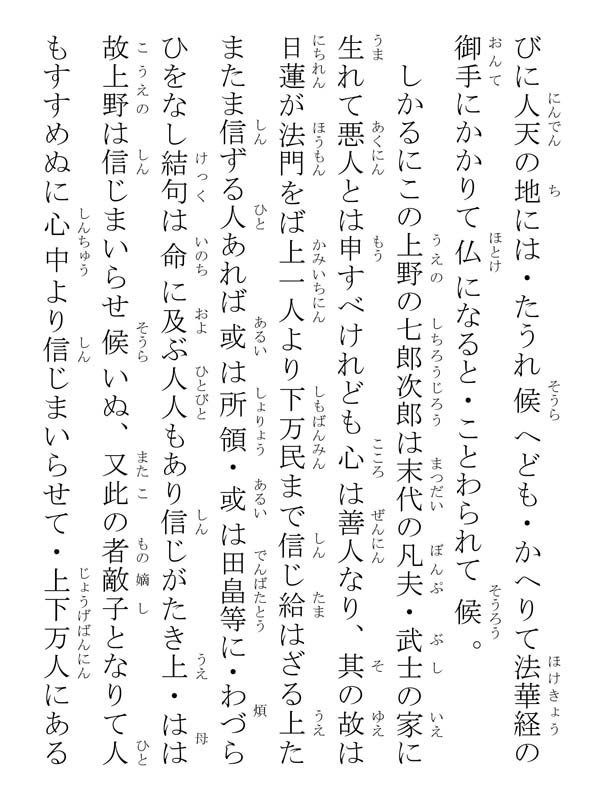 びに人天の地には・たうれ候へども・かへりて法華経の
御手にかかりて仏になると・ことわられて候。
しかるにこの上野の七郎次郎は末代の凡夫・武士の家に
生れて悪人とは申すべけれども心は善人なり、其の故は
日蓮が法門をば上一人より下万民まで信じ給はざる上た
またま信ずる人あれば或は所領・或は田畠等に・わづら
ひをなし結句は命に及ぶ人人もあり信じがたき上・はは
故上野は信じまいらせ候いぬ、又此の者敵子となりて人
もすすめぬに心中より信じまいらせて・上下万人にある